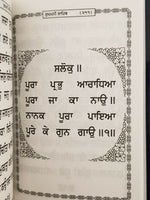 ਸੁਖਮਨੀ ਸਾਹਿਬ
ਸਲੋਕੁ ॥
ਪੂਰਾ ਪ੍ਰਭੁ ਆਰਾਧਿਆ
ਪੂਰਾ ਜਾ ਕਾ ਨਾਉ ॥
ਨਾਨਕ ਪੂਰਾ ਪਾਇਆ
ਪੂਰੇ ਕੇ ਗੁਨ ਗਾਉ ॥੧॥